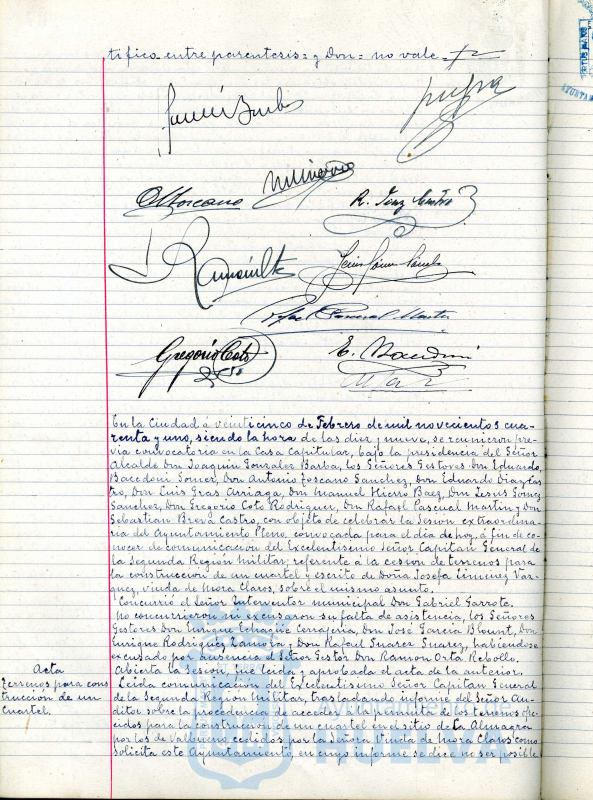 tifico-entre parentesis= y Don= no vale
Gregorio Coto
Rafael Pascual Martin
En la Ciudad á veinticinco de Febrero de mil novecientos cua-
renta y uno, siendo la hora de las diez y nueve, se reunieron pre-
via convocatoria en la Casa Capitular, bajo la presidencia del Señor
Alcalde Don Joaquin Gonzalez Barba, los Señores Gestores Don Eduardo
Bacedoni Gomer, Don Antonio Toscano Sanchez, Don Eduardo Diaz Cas
tro, Don Luis Gras Arriaga, Don Manuel Hierro Baez, Don Jesus Gomez
Sanchez, Don Gregorio Coto Rodriguez, Don Rafael Pascual Martin y Don
Sebastian Brevá Castro, con objeto de celebrar la Sesion extraordina-
ria del Ayuntamiento Pleno, convocada para el dia de hoy, á fin de co-
nocer de comunicacion del Excelentisimo Señor Capitan General de
la Segunda Region Militar, referente á la cesion de terrenos para
la construccion de un cuartel y escrito de Doña Josefa Jimenez Vaz-
quez, viuda de Mora Claros, sobre el mismo asunto.
Concurrió el Señor Interventor municipal Don Gabriel Garrote.
No concurrieron ni excusaron su falta de asistencia, los Señores
Gestores Don Enrique Echarive Cerrageria, Don José Garcia Blount, Don
Enrique Rodriguez Zamora y Don Rafael Suarez Suarez, habiendose
excusado por ausencia el Señor Gestor Don Ramon Orta Rebollo.
Acta
Abierta la Sesion, fué leida y aprobada el acta de la anterior.
Terrenos para cons
truccion de un
Cuartel.
Leida comunicacion del Excelentisimo Señor Capitan General
de la Segunda Region Militar, trasladando informe del Señor Au-
ditor sobre la procedencia de acceder á la permuta de los terrenos ofre-
cidos para la construccion de un cuartel en el sitio de La Almagra
por los de Valbueno, cedidos por la Señora Viuda de Mora Claros como
solicita este Ayuntamiento, en cuyo informe se dice no ser posible